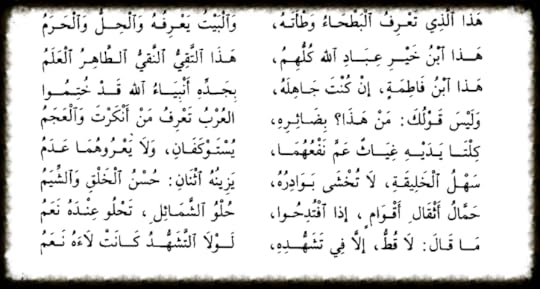 هَذَا ٱلَّذِي تَعْرِفُ ٱلْبَطْحَاءُ وَطْأَتَهُ، وَٱلْبَيْتُ يَعْرِفُهُ وَٱلْحِلُّ وَٱلْحَرَمُ
هَذَا ٱبْنُ خَيْرِ عِبَادِ ٱلله كُلِّهِمُ، هَذَا ٱلتَّقِيُّ ٱلنَّقِيُّ ٱلطَّاهِرُ ٱلْعَلَمُ
هَذَا ٱبْنُ فَاطِمَةٍ، إِنْ كُنْتَ جَاهِلَهُ، بِجَدِّهِ أَنْبِيَاءُ ٱلله قَدْ خُتِمُوا
وَلَيْسَ قَوْلُكَ: مَنْ هَذَا؟ بِضَائِرِهِ، العُرْبُ تَعْرِفُ مَنْ أَنْكَرْتَ وَٱلْعَجَمُ
كِلْتَا يَدَيْهِ غِيَاثٌ عَمَّ نَفْعُهُمَا، يُسْتَوْكَفَانِ، وَلَا يَعْرُوهُمَا عَدَمُ
سَهْلُ ٱلْخَلِيقَةِ، لَا تُخْشَى بَوَادِرُهُ، يَزِينُهُ ٱثْنَانِ: حُسْنُ ٱلْخَلْقِ وَٱلشِّيَمُ
حَمَّالُ أَثْقَالِ أَقْوَامٍ، إذا ٱفْتُدِحُوا، حُلْوُ ٱلشَّمَائِلِ، تَحْلُو عِنْدَهُ نَعَمُ
مَا قَالَ: لَا قَطُّ، إلَّا فِي تَشَهُّدِهِ، لَوْلَا ٱلتَّشَهُّدُ كَانَتْ لَاءَهُ نَعَمُ